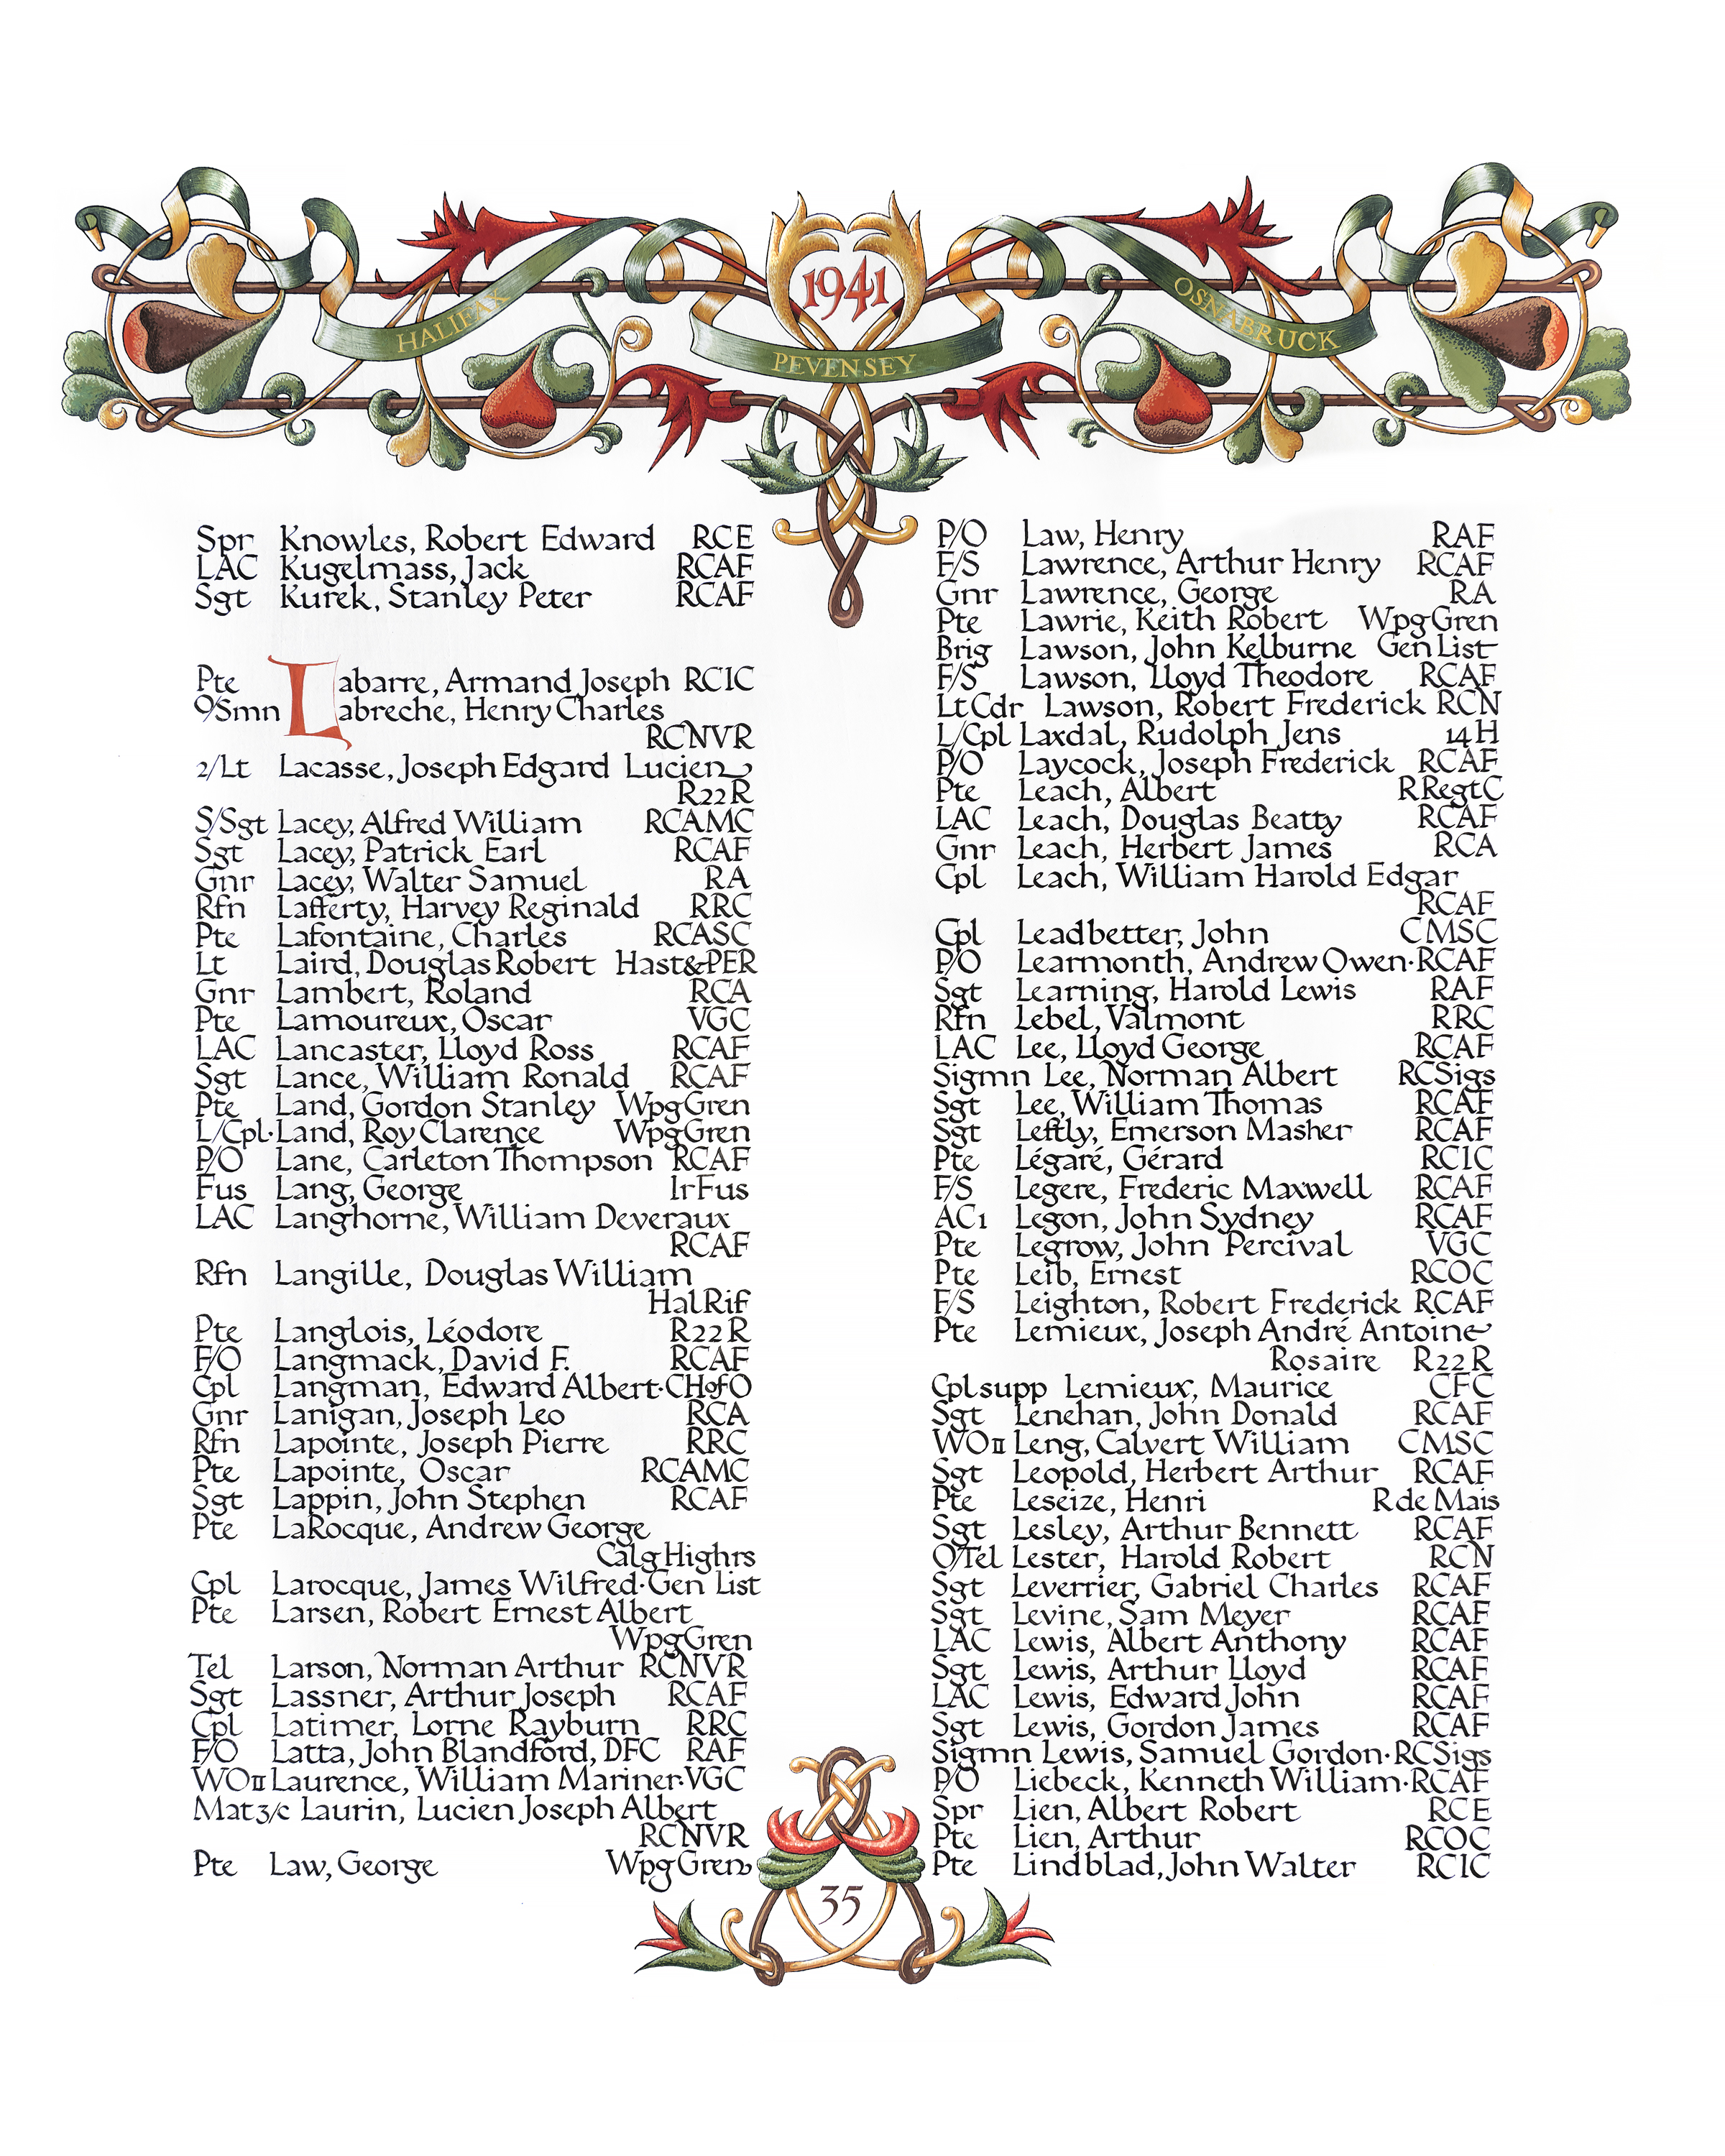 1941
HALIFAX
PEVENSEY
OSNABRUCK
Spr Knowles, Robert Edward RCE
LAC Kugelmass, Jack RCAF
Sgt Kurek, Stanley Peter RCAF
Pte Labarre, Armand Joseph RCIC
O/Smn Labreche, Henry Charles
RCNVR
2/Lt Lacasse, Joseph Edgard Lucien
R22R
S/Sgt Lacey, Alfred William RCAMC
Sgt Lacey, Patrick Earl RCAF
Gnr Lacey, Walter Samuel RA
Rfn Lafferty, Harvey Reginald RRC
Pte Lafontaine, Charles RCASC
Lt Laird, Douglas Robert Hast&PER
Gnr Lambert, Roland RCA
Pte Lamoureux, Oscar VGC
LAC Lancaster, Lloyd Ross RCAF
Sgt Lance, William Ronald RCAF
Pte Land, Gordon Stanley WpgGren
L/Cpl·Land, Roy Clarence WpgGren
P/O Lane, Carleton Thompson RCAF
Fus Lang, George IrFus
LAC Langhorne, William Deveraux
RCAF
Rfn Langille, Douglas William
HalRif
Pte Langlois, Léodore R22R
F/O Langmack, David F. RCAF
Cpl Langman, Edward Albert·CHofO
Gnr Lanigan, Joseph Leo RCA
Rfn Lapointe, Joseph Pierre RRC
Pte Lapointe, Oscar RCAMC
Sgt Lappin, John Stephen RCAF
Pte LaRocque, Andrew George
CalgHighrs
Cpl Larocque, James Wilfred·Gen List
Pte Larsen, Robert Ernest Albert
WpgGren
Tel Larson, Norman Arthur RCNVR
Sgt Lassner, Arthur Joseph RCAF
Cpl Latimer, Lorne Rayburn RRC
F/O Latta, John Blandford, DFC RAF
WOII Laurence, William Mariner·VGC
Mat3/c Laurin, Lucien Joseph Albert
RCNVR
Pte Law, George WpgGren
P/O Law, Henry RAF
F/S Lawrence, Arthur Henry RCAF
Gnr Lawrence, George RA
Pte Lawrie, Keith Robert WpgGren
Brig Lawson, John Kelburne Gen List
F/S Lawson, Lloyd Theodore RCAF
Lt Cdr Lawson, Robert Frederick RCN
L/Cpl Laxdal, Rudolph Jens 14H
P/O Laycock, Joseph Frederick RCAF
Pte Leach, Albert RRegtC
LAC Leach, Douglas Beatty RCAF
Gnr Leach, Herbert James RCA
Cpl Leach, William Harold Edgar
RCAF
Cpl Leadbetter, John CMSC
P/O Learmonth, Andrew Owen·RCAF
Sgt Learning, Harold Lewis RAF
Rfn Lebel, Valmont RRC
LAC Lee, Lloyd George RCAF
Sigmn Lee, Norman Albert RCSigs
Sgt Lee, William Thomas RCAF
Sgt Leftly, Emerson Masher RCAF
Pte Légaré, Gérard RCIC
F/S Legere, Frederic Maxwell RCAF
AC1 Legon, John Sydney RCAF
Pte Legrow, John Percival VGC
Pte Leib, Ernest RCOC
F/S Leighton, Robert Frederick RCAF
Pte Lemieux, Joseph André Antoine
Rosaire R22R
Cpl supp Lemieux, Maurice CFC
Sgt Lenehan, John Donald RCAF
WOII Leng, Calvert William CMSC
Sgt Leopold, Herbert Arthur RCAF
Pte Leseize, Henri R de Mais
Sgt Lesley, Arthur Bennett RCAF
O/Tel Lester, Harold Robert RCN
Sgt Leverrier, Gabriel Charles RCAF
Sgt Levine, Sam Meyer RCAF
LAC Lewis, Albert Anthony RCAF
Sgt Lewis, Arthur Lloyd RCAF
LAC Lewis, Edward John RCAF
Sgt Lewis, Gordon James RCAF
Sigmn Lewis, Samuel Gordon·RCSigs
P/O Liebeck, Kenneth William·RCAF
Spr Lien, Albert Robert RCE
Pte Lien, Arthur RCOC
Pte Lindblad, John Walter RCIC
35